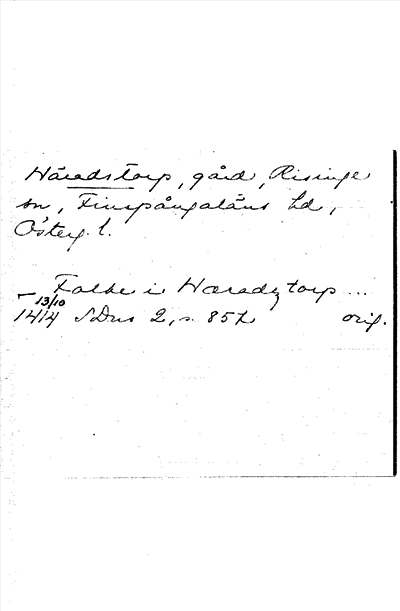 Häradstorp, gård, Risinge
sn, Finspångaläns hd,
Österg. l.
Falke i Haradztorp ...
— 13/10
1414 SDns 2, s. 857 orig.